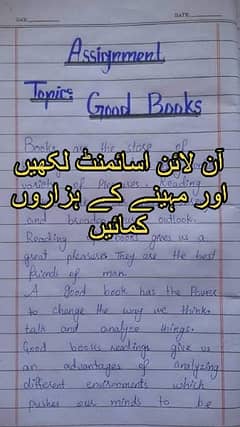 DAY:
DATE:
Assignment
Topic:
Good Books
Books are the store of
آن لائن اسائمنٹ لکھیں
variety of pleasures. Reading
اور مہینے کے ہزاروں
and broaden our outlook.
کمائیں
Reading books gives us a
great pleasure. They are the best
friends of man.
A good book has the Power
to change the way we think,
talk and analyze things.
Good books reading give us
an advantages of analyzing
different environments which
pushes our minds to be